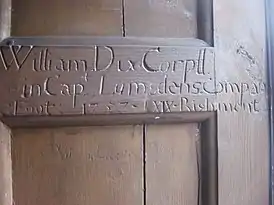 William Dix Corpll
in Capt Lumsdens Compay
Foot 1757 XIV Rishment